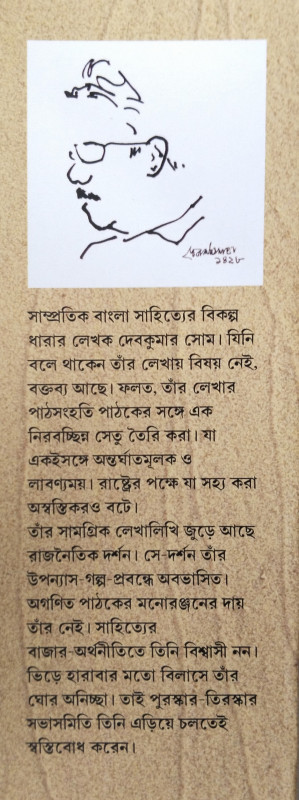 ১৪২৮
সাম্প্রতিক বাংলা সাহিত্যের বিকল্প
ধারার লেখক দেবকুমার সোম। যিনি
বলে থাকেন তাঁর লেখায় বিষয় নেই,
বক্তব্য আছে। ফলত, তাঁর লেখার
পাঠসংহতি পাঠকের সঙ্গে এক
নিরবচ্ছিন্ন সেতু তৈরি করা। যা
একইসঙ্গে অন্তর্ঘাতমূলক ও
লাবণ্যময়। রাষ্ট্রের পক্ষে যা সহ্য করা
অস্বস্তিকরও বটে।
তাঁর সামগ্রিক লেখালিখি জুড়ে আছে
রাজনৈতিক দর্শন। সে-দর্শন তাঁর
উপন্যাস-গল্প-প্রবন্ধে অবভাসিত।
অগণিত পাঠকের মনোরঞ্জনের দায়
তাঁর নেই। সাহিত্যের
বাজার-অর্থনীতিতে তিনি বিশ্বাসী নন।
ভিড়ে হারাবার মতো বিলাসে তাঁর
ঘোর অনিচ্ছা। তাই পুরস্কার-তিরস্কার
সভাসমিতি তিনি এড়িয়ে চলতেই
স্বস্তিবোধ করেন।